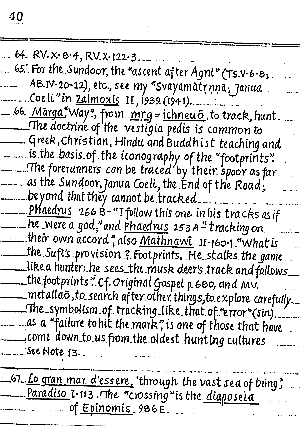 40
64. RV.X.8.4, RV.X.122.3
65. For the Sundoor, the "ascent after Agni" (TS.V.6.8;
AB.IV.20-22), etc., see my "Svayamātṛṇṇā; Janua
Coeli" in Zalmoxis II, 1939 (1941).
66. Mārga, "Way", from mṛg = ichneuō, to track, hunt.
The doctrine of the vestigia pedis is common to
Greek, Christian, Hindu and Buddhist teaching and
is the basis of the iconography of the "footprints".
The forerunners can be traced by their spoor as far
as the Sundoor, Janua Coeli, the End of the Road;
beyond that they cannot be tracked.
Phaedrus 266 B - "I follow this one in his tracks as if
he were a god," and Phaedrus 253 A "tracking on
their own accord"; also Mathnawī II.160.1. "What is
the Sufi's provision? Footprints. He stalks the game
like a hunter: he sees the musk deer's track and follows
the footprints". Cf. Original Gospel p. 680, and MV.
metallaō, to search after other things, to explore carefully.
The symbolism of tracking like that of "error" (sin)
as a "failure to hit the mark", is one of those that have
come down to us from the oldest hunting cultures
See Note 13.
67. Lo gran mar d'essere, 'through the vast sea of being',
Paradiso 1.113. The "crossing" is the diaporeia
of Epinomis 986 E.